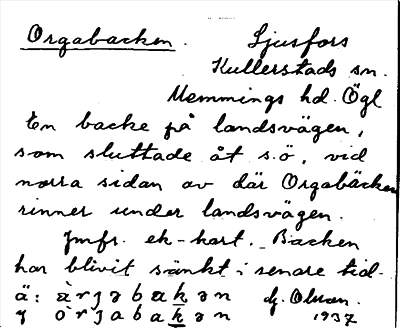 Orgabacken. Ljusfors
Kullerstads sn.
Memmings hd. Ögl
En backe på landsvägen,
som sluttade åt s.ö. vid
norra sidan av där Orgabäcken
rinner under landsvägen.
Jmfr. ek-kart. Backen
har blivit sänkt i senare tid.
ä: àrȝəbakən
y òrȝabakən 1937